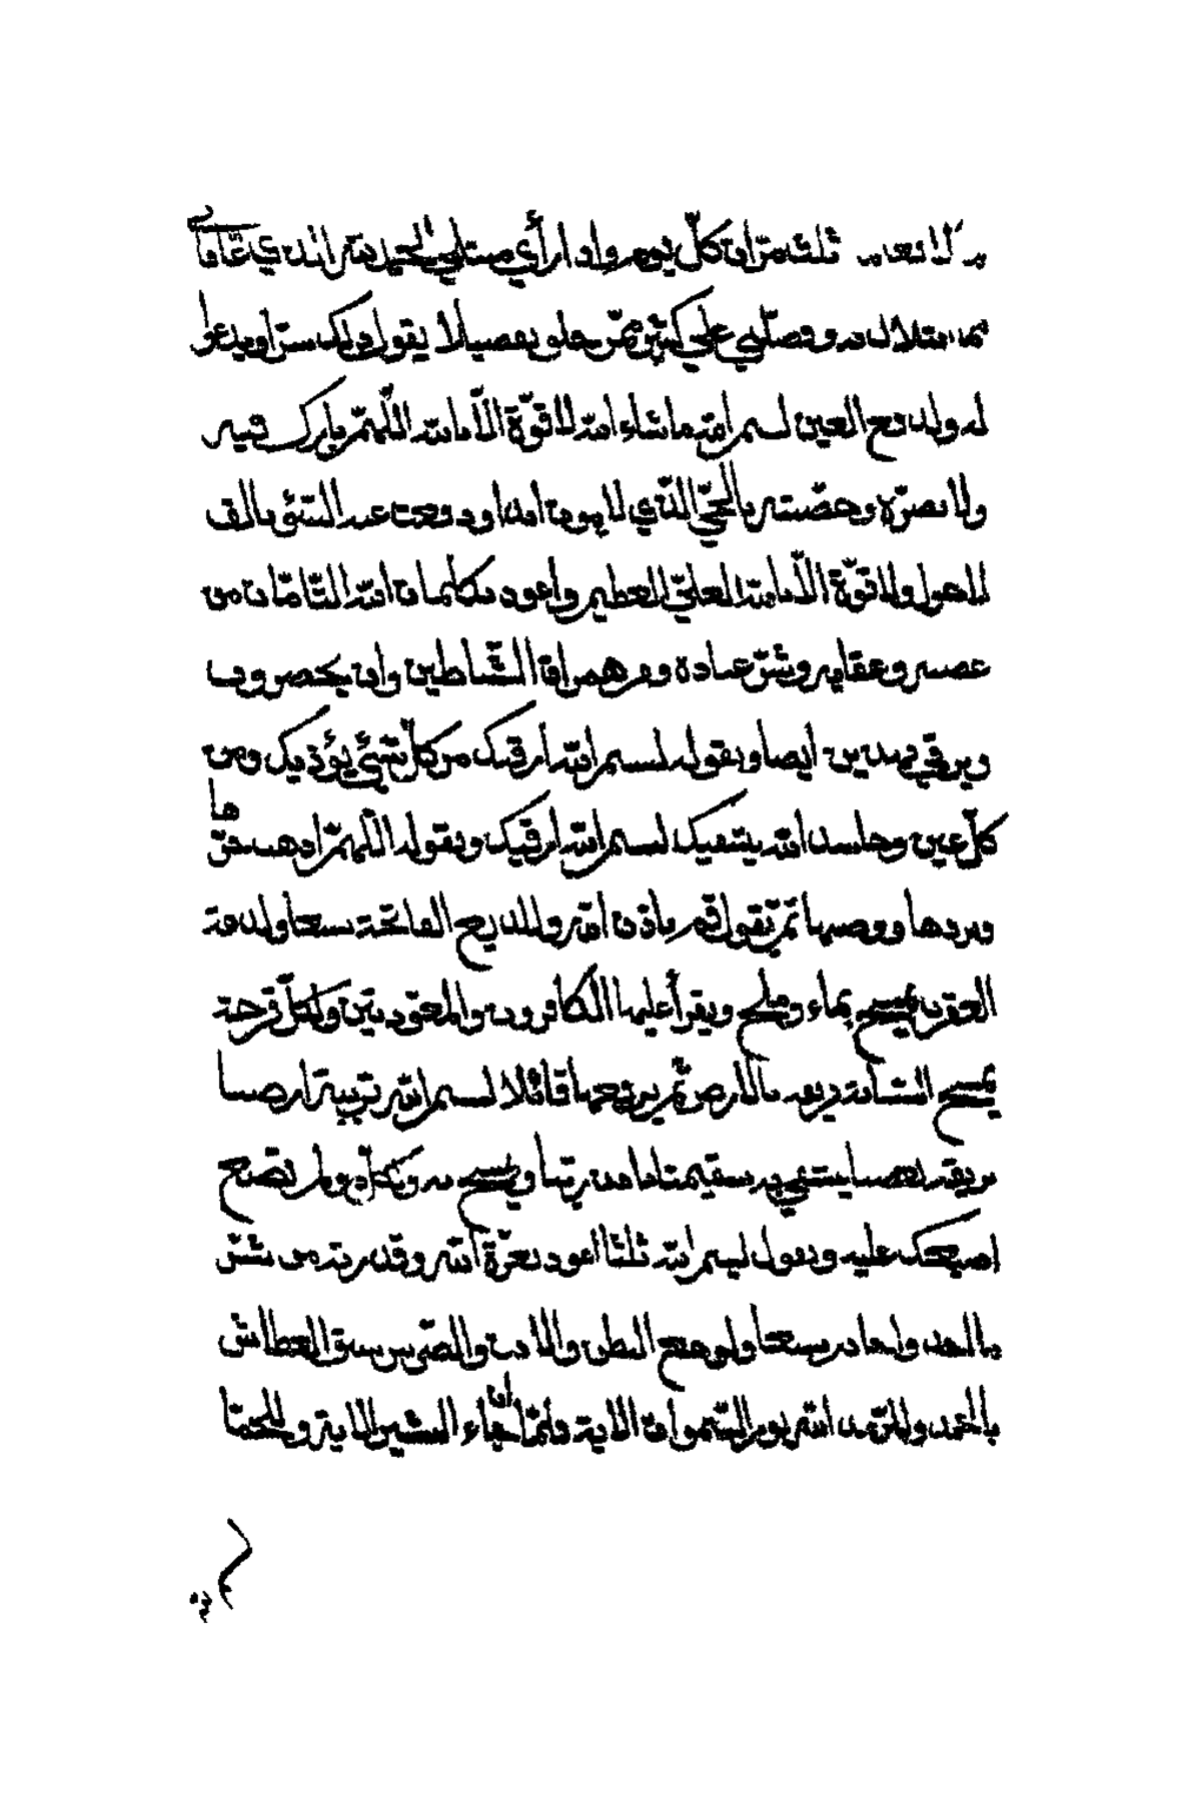 ثلث مرّات كلّ يوم واذا رأى مبتلى الحمد لله الذي عافاني
ممّا ابتلاك به وفضّلني على كثير ممّن خلق تفضيلا يقول ذلك سرّا ويدعو
له ولدفع العين بسم الله ما شاء الله لا قوّة الّا بالله اللّهمّ بارك فيه
ولا تضرّه وحصّنته بالحيّ الّذي لا يموت ابدا ودفعت عنه السّوء بالف
لا حول ولا قوّة الّا بالله العليّ العظيم واعوذ بكلمات الله التّامّات من
غضبه وعقابه وشرّ عباده ومن همزات الشّياطين وان يحضرون
ويرقي بهذين ايضا ويقول بسم الله ارقيك من كلّ شيء يؤذيك ومن
كلّ عين وحاسد الله يشفيك بسم الله ارقيك ويقول اللّهمّ اذهب حرّها
وبردها ووصبها ثمّ يقول قم باذن الله وللديغ الفاتحة سبعا ولدغة
العقرب يمسح بماء وملح ويقرأ عليها الكافرون والمعوّذتين ولكلّ قرحة
يمسح السّبّابة بالارض ثمّ يرفعها قائلا بسم الله تربة ارضنا
بريقة بعضنا يشفى به سقيمنا باذن ربّنا ويمسح به وكلّ تضع
اصبعك عليه وتقول بسم الله ثلثا اعوذ بعزّة الله وقدرته من شرّ
ما اجد واحاذر سبعا ولوجع البطن
الله نور السّموات الآية فلمّا ان جاء البشير الآية وللحمّى